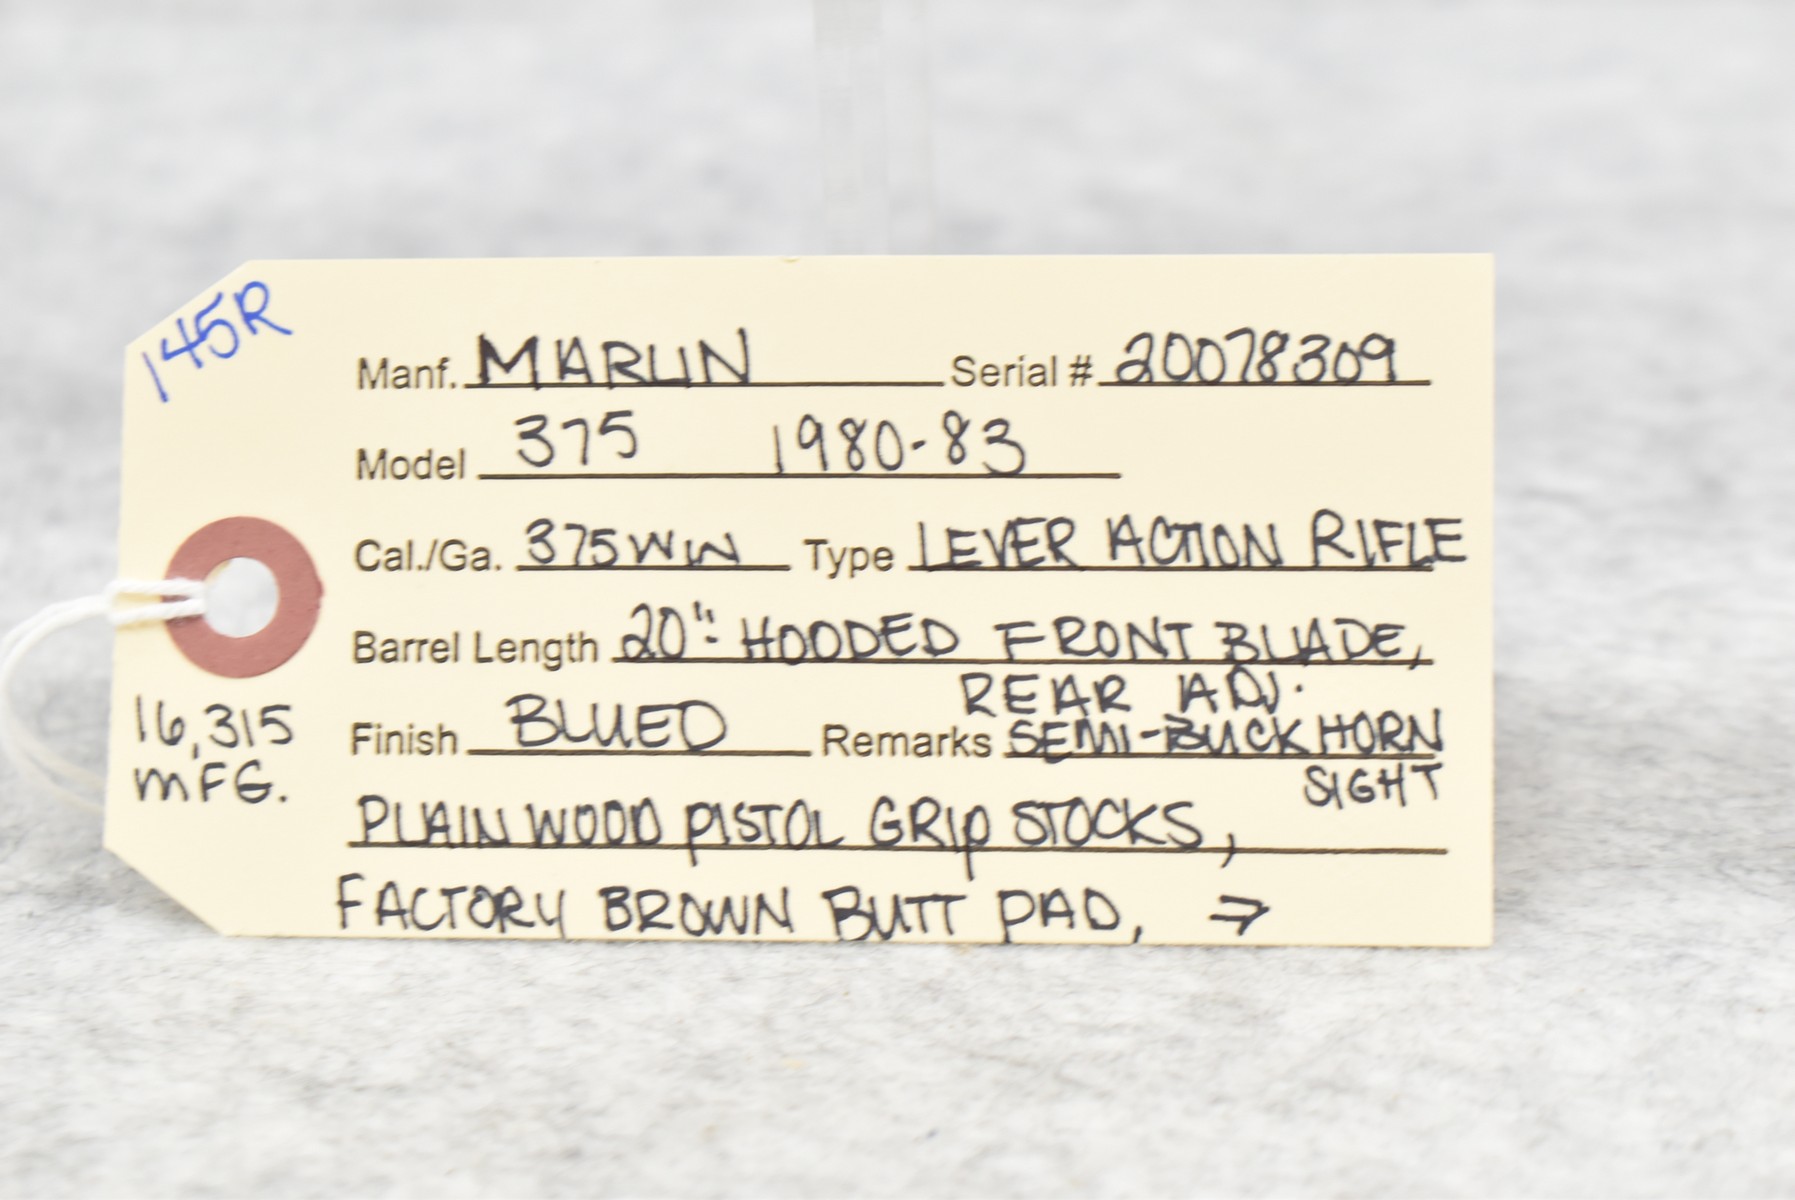 145R
Manf. MARLIN Serial # 20078309
Model 375 1980-83
Cal./Ga. 375 WIN Type LEVER ACTION RIFLE
Barrel Length 20": HOODED FRONT BLADE,
REAR ADJ.
Finish BLUED Remarks SEMI-BUCKHORN
SIGHT
16,315
MFG.
PLAIN WOOD PISTOL GRIP STOCKS,
FACTORY BROWN BUTT PAD, →